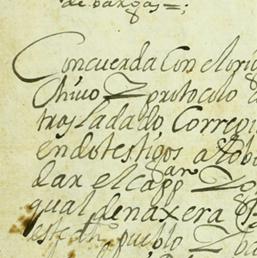 de bargas =;
Concuerda Con el orig
Chivo Y protocolo a
trasladado Corregi
endo testigos a lo
dar el capp Yo
qual de naxera
este dho pueblo Y